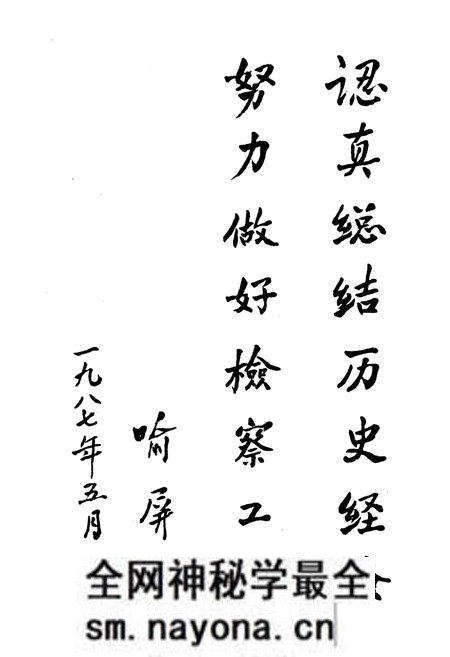 認真総结历史经
努力做好檢察工
喻屏
一九八七年五月
全网神秘学最全
sm.nayona.cn